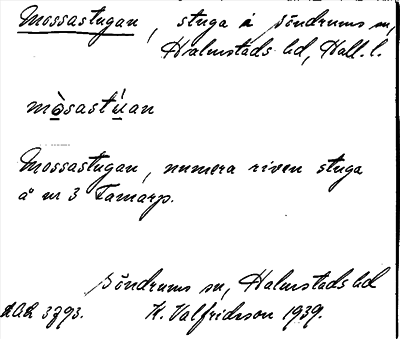 Mossastugan, stuga å Söndrums sn,
Halmstads hd, Hall. l.
mo̱̍sastú̱an
Mossastugan, numera riven stuga
å nr 3 Tamarp.
Söndrums sn, Halmstads hd
3793. K. Valfridsson 1939.